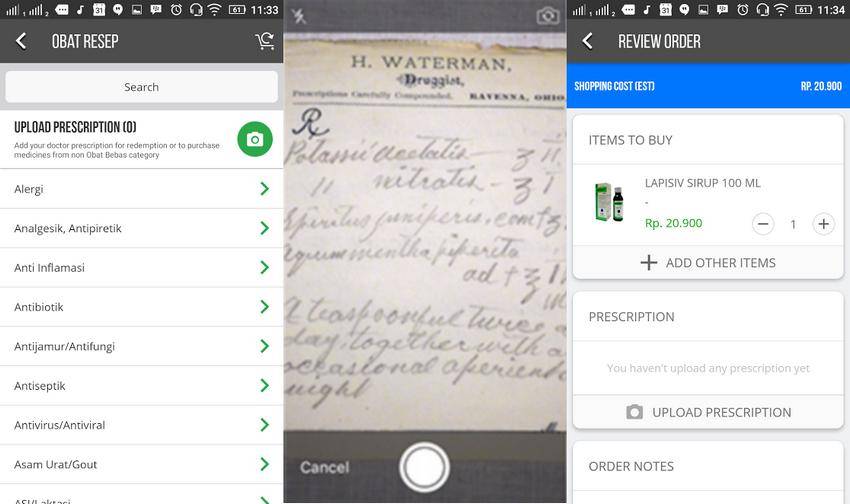 11:33
61
31
OBAT RESEP
Search
UPLOAD PRESCRIPTION (0)
Add your doctor prescription for redemption or to purchase
medicines from non Obat Bebas category
Alergi
Analgesik, Antipiretik
Anti Inflamasi
Antibiotik
Antijamur/Antifungi
Antiseptik
Antivirus/Antiviral
Asam Urat/Gout
ASI/Laktasi
H. WATERMAN,
Druggist,
Prescriptions Carefully Compounded. RAVENNA, OHIO
Rx
Potassii acetatis
" nitratis
Spiritus juniperis, comt
Aquae mentha piperita
ad
A teaspoonful twice a
day, together with a
occasional aperient
night
Cancel
11:34
61
31
REVIEW ORDER
SHOPPING COST (EST) RP. 20.900
ITEMS TO BUY
LAPISIV SIRUP 100 ML
-
Rp. 20.900
1
ADD OTHER ITEMS
PRESCRIPTION
You haven't upload any prescription yet
UPLOAD PRESCRIPTION
ORDER NOTES